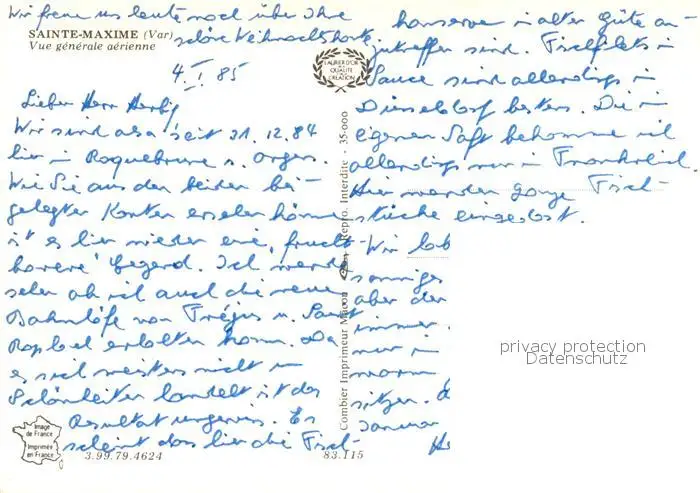 Wir freuen uns heute noch über Ihre
schöne Weihnachtskarte.
SAINTE-MAXIME (Var)
Vue générale aérienne
4. I. 85
LAURIER D'OR
DE LA
QUALITÉ
CRÉATION
Lieber Herr
Wir sind also seit 31.12.84
hier in Roquebrune s. Argens.
Wie Sie aus den beiden bei-
gelegten Karten ersehen können
ist es hier wieder eine
Gegend. Ich werde
sehen ob ich auch die neuen
Bahnhöfe von Fréjus u. Saint
Raphael erhalten kann. Da
es sich meistens nicht um
Schönheiten handelt ist das
Resultat ungewiss. Es
scheint das hier die Fisch-
konserven in alter Güte an-
zutreffen sind. Fischfilets in
Sauce sind allerdings in
Düsseldorf besser. Die im
eigenen Saft bekomme ich
allerdings nur in Frankreich.
Hier werden ganze Fisch-
stücke eingedost.
Wir
sonniges
aber der
immer
nur in
warm
sitzen.
Januar
Combier Imprimeur Macon
Repro. Interdite
35-000
Image
de France
Imprimée
en France
3.99.79.4624
83.115
privacy protection
Datenschutz